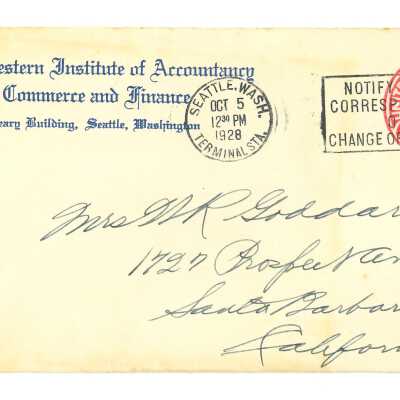 estern Institute of Accountancy
Commerce and Finance
eary Building, Seattle, Washington
SEATTLE, WASH.
OCT 5
12 30 PM
1928
TERMINAL STA.
NOTIFY
CORRESP
O
CHANGE O
Mrs W R Goddar
1727 Prospect Av
Santa Barbar
Californ